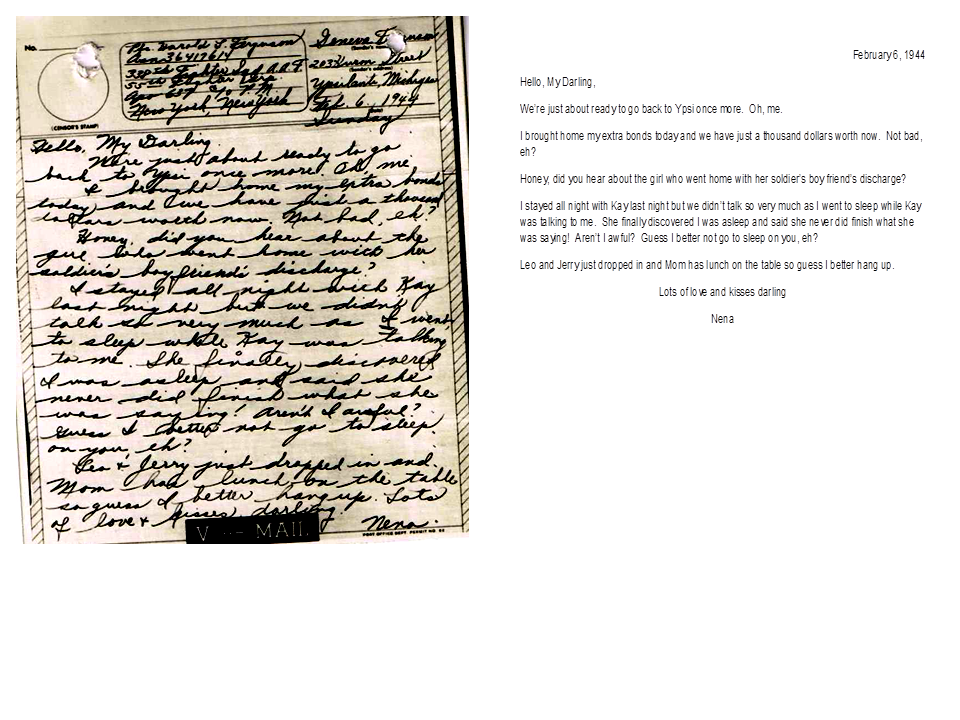 No.
(CENSOR'S STAMP)
Pfc. Harold L. Ferguson
Asn 36417614
338th Fighter Sqd. A.A.F.
55th Fighter Grp.
Apo 637 c/o P.M.
New York, New York
Geneva Ferguson
203 Street
Ypsilanti, Michigan
Feb. 6, 1944
Sunday
Hello, My Darling,
We're just about ready to go
back to Ypsi once more. Oh, me
I brought home my extra bonds
today and we have just a thousand
dollars worth now. Not bad, eh?
Honey, did you hear about the
girl who went home with her
soldier's boy friend's discharge?
I stayed all night with Kay
last night but we didn't
talk so very much as I went
to sleep while Kay was talking
to me. She finally discovered
I was asleep and said she
never did finish what she
was saying! Aren't I awful?
Guess I better not go to sleep
on you, eh?
Leo & Jerry just dropped in and
Mom has lunch on the table
so guess I better hang up. Lots
of love & kisses, darling.
Nena.
V--- MAIL
POST OFFICE DEPT. PERMIT NO.
February 6, 1944
Hello, My Darling,
We're just about ready to go back to Ypsi once more. Oh, me.
I brought home my extra bonds today and we have just a thousand dollars worth now. Not bad,
eh?
Honey, did you hear about the girl who went home with her soldier's boy friend's discharge?
I stayed all night with Kay last night but we didn't talk so very much as I went to sleep while Kay
was talking to me. She finally discovered I was asleep and said she never did finish what she
was saying! Aren't I awful? Guess I better not go to sleep on you, eh?
Leo and Jerry just dropped in and Mom has lunch on the table so guess I better hang up.
Lots of love and kisses darling
Nena